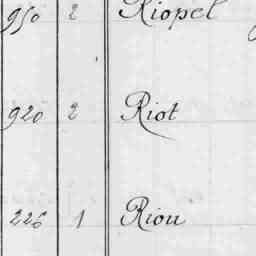 950 2 Riopel
920 2 Riot
226 1 Riou